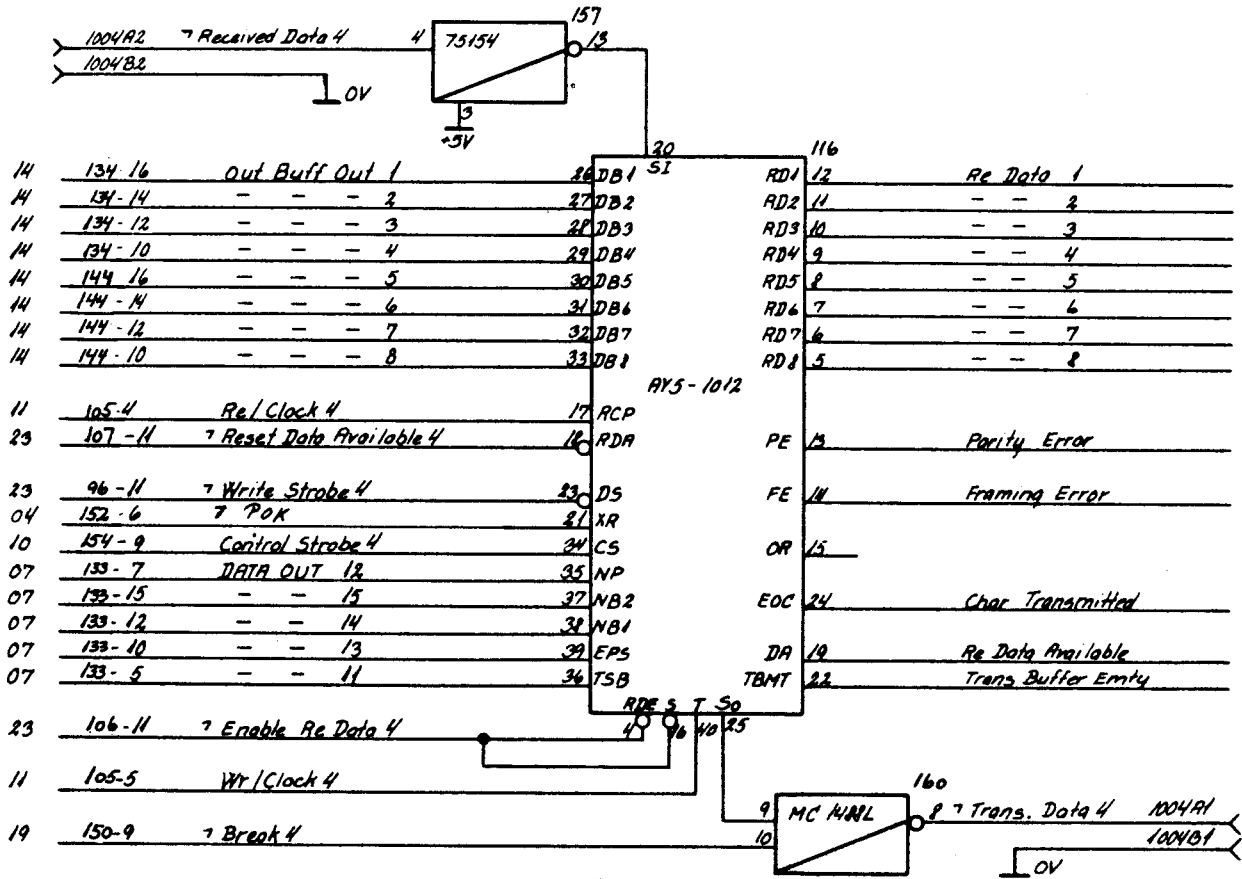 157
1004A2 ¬ Received Data 4 4 75154 13
1004B2
0V
3
+5V
20 116
SI
14 134-16 Out Buff Out 1 26 DB1 RD1 12 Re Data 1
14 134-14 - - - 2 27 DB2 RD2 11 - - 2
14 134-12 - - - 3 28 DB3 RD3 10 - - 3
14 134-10 - - - 4 29 DB4 RD4 9 - - 4
14 144-16 - - - 5 30 DB5 RD5 8 - - 5
14 144-14 - - - 6 31 DB6 RD6 7 - - 6
14 144-12 - - - 7 32 DB7 RD7 6 - - 7
14 144-10 - - - 8 33 DB8 RD8 5 - - 8
AY5-1012
11 105-4 Re/Clock 4 17 RCP
23 107-11 ¬ Reset Data Available 4 18 RDA PE 13 Parity Error
23 96-11 ¬ Write Strobe 4 23 DS FE 14 Framing Error
04 152-6 ¬ POK 21 XR
10 154-9 Control Strobe 4 34 CS OR 15
07 133-7 DATA OUT 12 35 NP
07 133-15 - - 15 37 NB2 EOC 24 Char Transmitted
07 133-12 - - 14 38 NB1
07 133-10 - - 13 39 EPS DA 19 Re Data Available
07 133-5 - - 11 36 TSB TBMT 22 Trans Buffer Emty
RDE S T SO
23 106-11 ¬ Enable Re Data 4 4 16 40 25
11 105-5 Wr/Clock 4
160
9 MC 1488L 8 ¬ Trans. Data 4 1004A1
19 150-9 ¬ Break 4 10 1004B1
0V